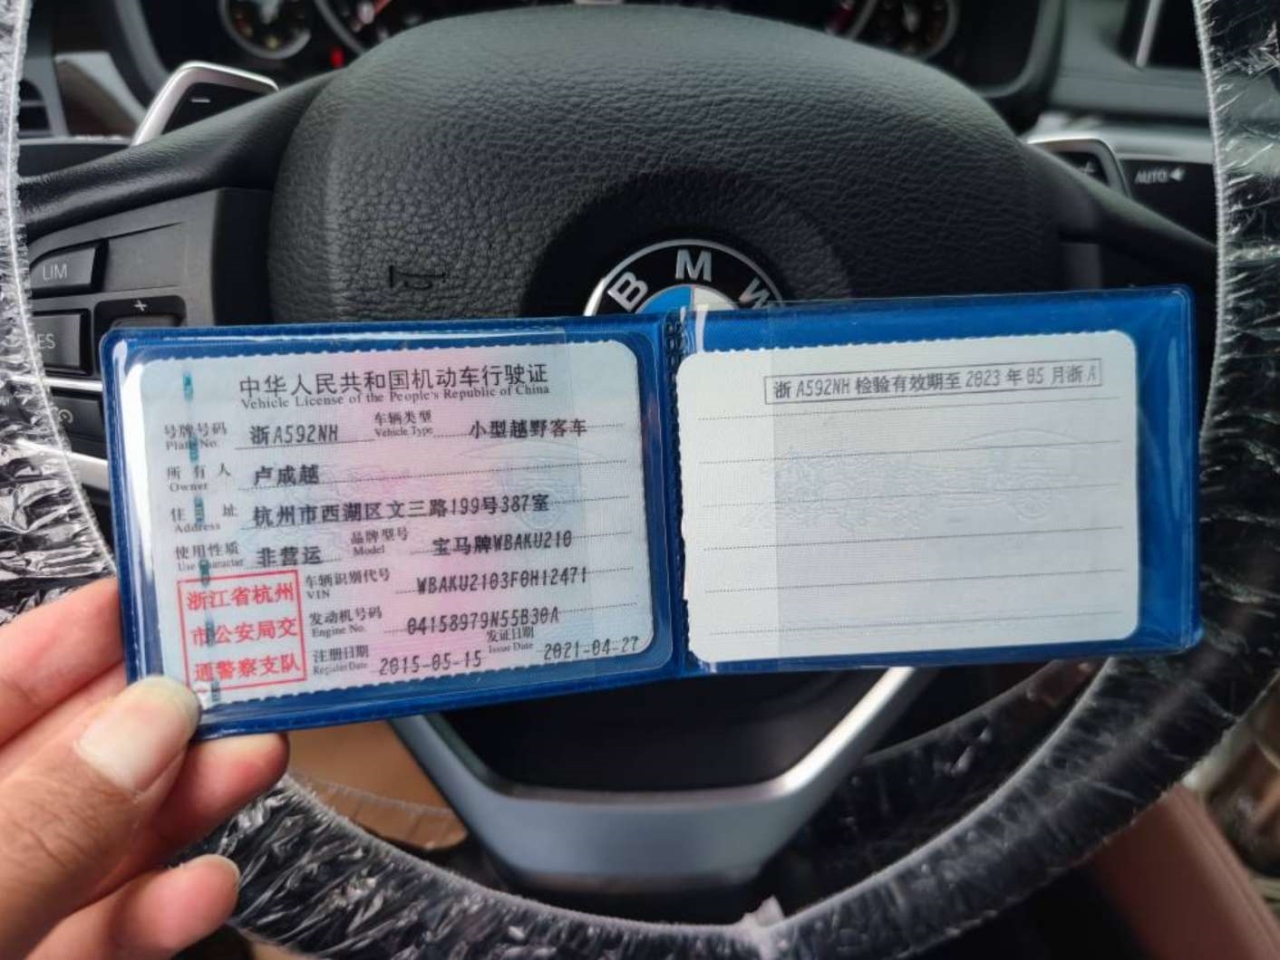 AUTO
LIM
BMW
中华人民共和国机动车行驶证
Vehicle License of the People's Republic of China
号牌号码 浙A592NH 车辆类型 小型越野客车
Plate No. Vehicle Type
所有人 卢成越
Owner
住址 杭州市西湖区文三路199号387室
Address
使用性质 非营运 品牌型号 宝马牌WBAKU210
Use Character Model
浙江省杭州
市公安局交
通警察支队
车辆识别代号 WBAKU2103F0H12471
VIN
发动机号码 04158979N55B30A
Engine No.
注册日期 2015-05-15 发证日期 2021-04-27
Register Date Issue Date
浙A592NH 检验有效期至2023年05月浙A